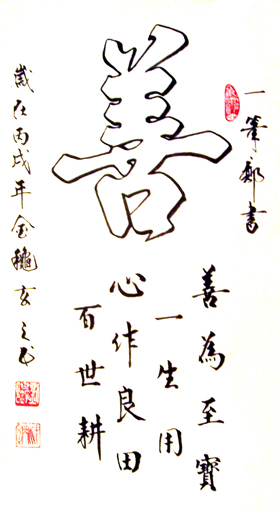 一筆鄭書
善
善為至寶
一生用
心作良田
百世耕
歲在丙戌年金穐